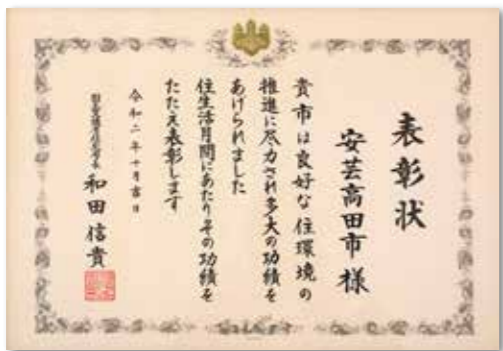 表彰状
安芸高田市様
貴市は良好な住環境の
推進に尽力され多大の功績を
あげられました
住生活月間にあたりその功績を
たたえ表彰します
令和二年十月吉日
和田信貴